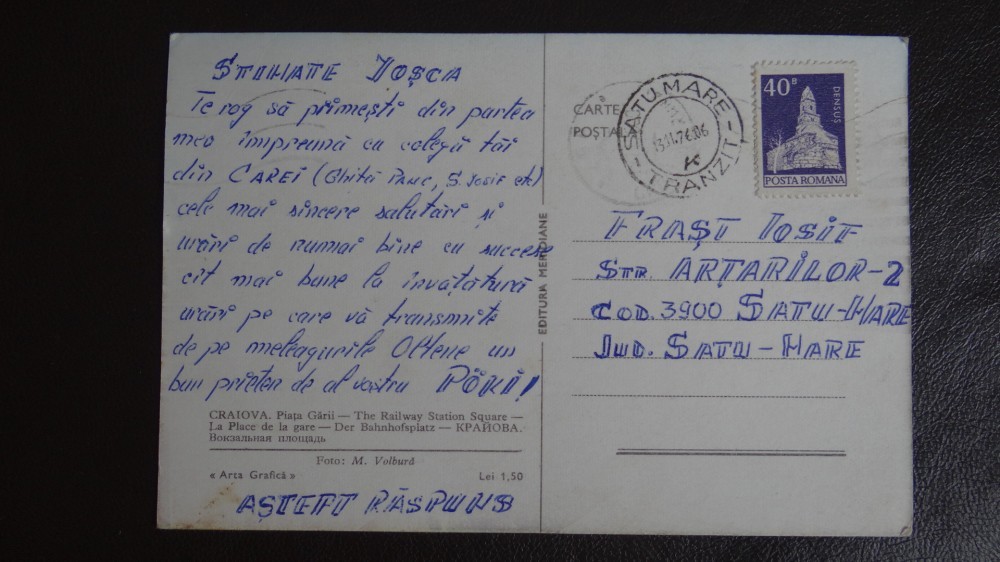 STIMATE IOȘCA
Te rog să primești din partea
mea împreună cu colegii tăi
din CAREI (Ghiței PANC, S. Iosif etc)
cele mai sincere salutări și
urări de numai bine cu succese
cît mai bune la învățătură
urări pe care vă transmite
de pe meleagurile Oltene un
bun prieten de al vostru PÖKI!
CRAIOVA. Piața Gării — The Railway Station Square —
La Place de la gare — Der Bahnhofsplatz — КРАЙОВА.
Вокзальная площадь
Foto: M. Volbură
« Arta Grafică » Lei 1,50
AȘTEPT RĂSPUNS
EDITURA MERIDIANE
CARTE
POȘTALĂ
SATU MARE
TRANZIT
40B
DENSUȘ
POSTA ROMANA
FRAȘT IOSIF
STR. ARȚARILOR-2
COD. 3900 SATU-MARE
JUD. SATU-MARE